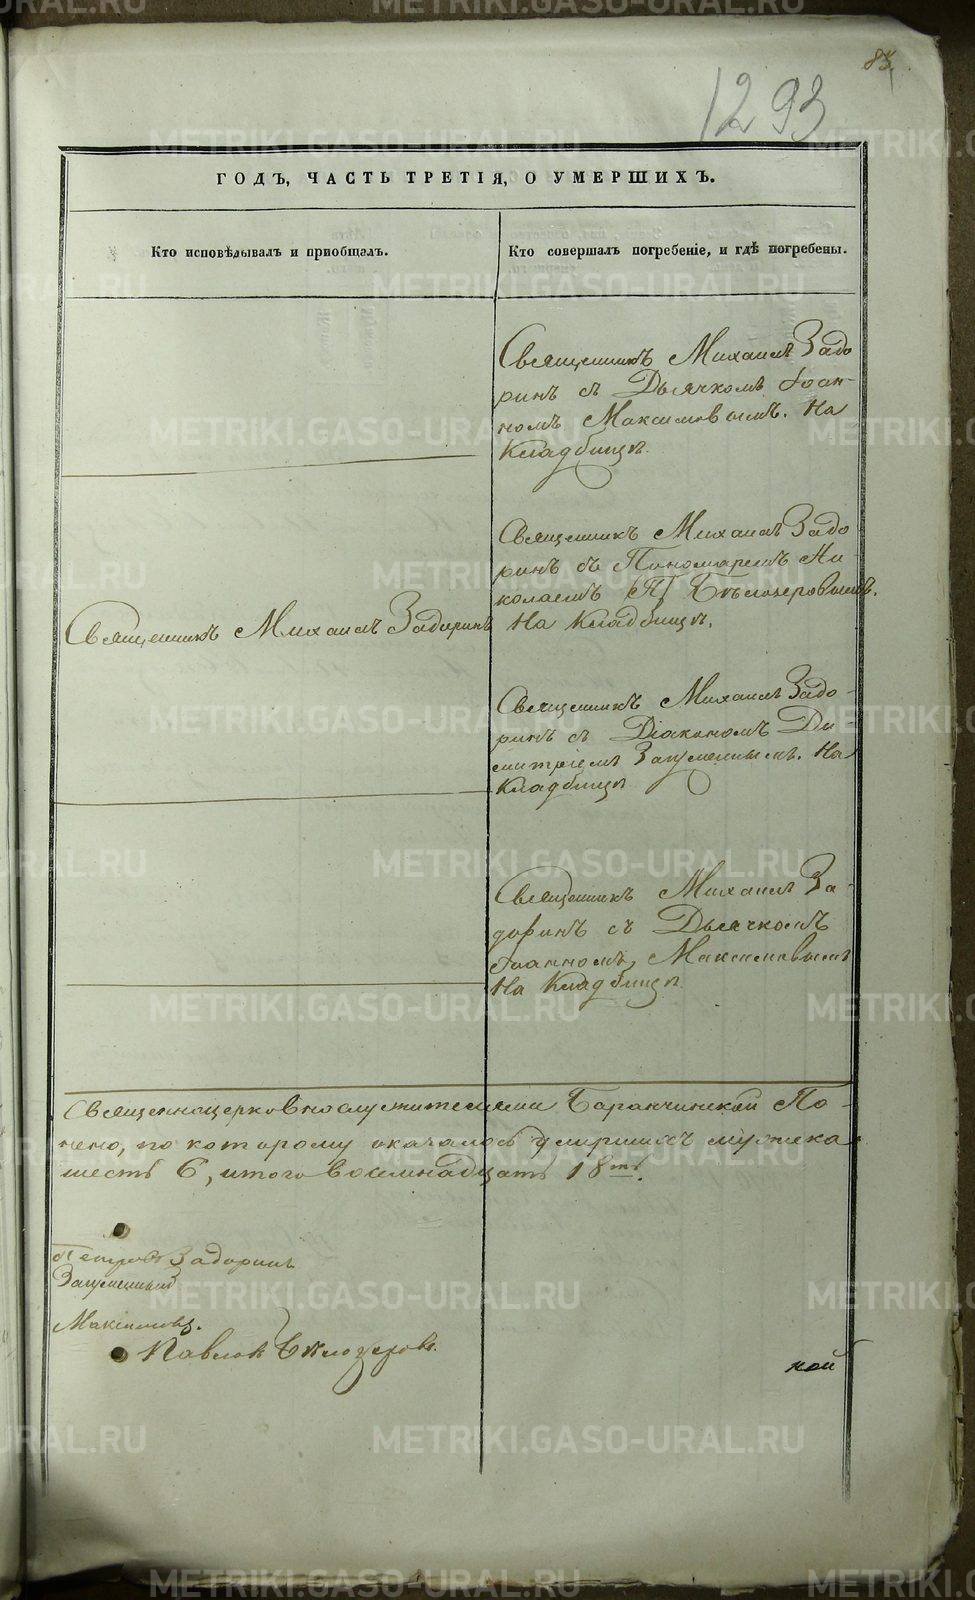 85
1293
ГОДЪ, ЧАСТЬ ТРЕТІЯ, О УМЕРШИХЪ.
Кто исповѣдывалъ и пріобщалъ.
Кто совершалъ погребеніе, и гдѣ погребены.
Священникъ Михаилъ Задо
ринъ съ Дьячкомъ Іоан-
номъ Максимовымъ. На
Кладбищѣ.
Священникъ Михаилъ Задо-
ринъ съ Пономаремъ Ни-
колаемъ (П) Бѣлозеровымъ.
На Кладбищѣ.
Священникъ Михаилъ Задоринъ
Священникъ Михаилъ Задо-
ринъ съ Діакономъ Ди
митріемъ Загуменнымъ. На
Кладбищѣ
Священникъ Михаилъ За-
доринъ съ Дьячкомъ
Іоанномъ Максимовымъ
На Кладбищѣ
Священноцерковнослужителями Баранчинской По-
чено, по которому оказалось умершихъ мужеска
шесть 6, итого восемнадцать 18ть.
Петровъ Задоринъ
Загуменный
Максимовъ.
Павловъ Бѣлозеровъ.
кой
METRIKI.GASO-URAL.RU